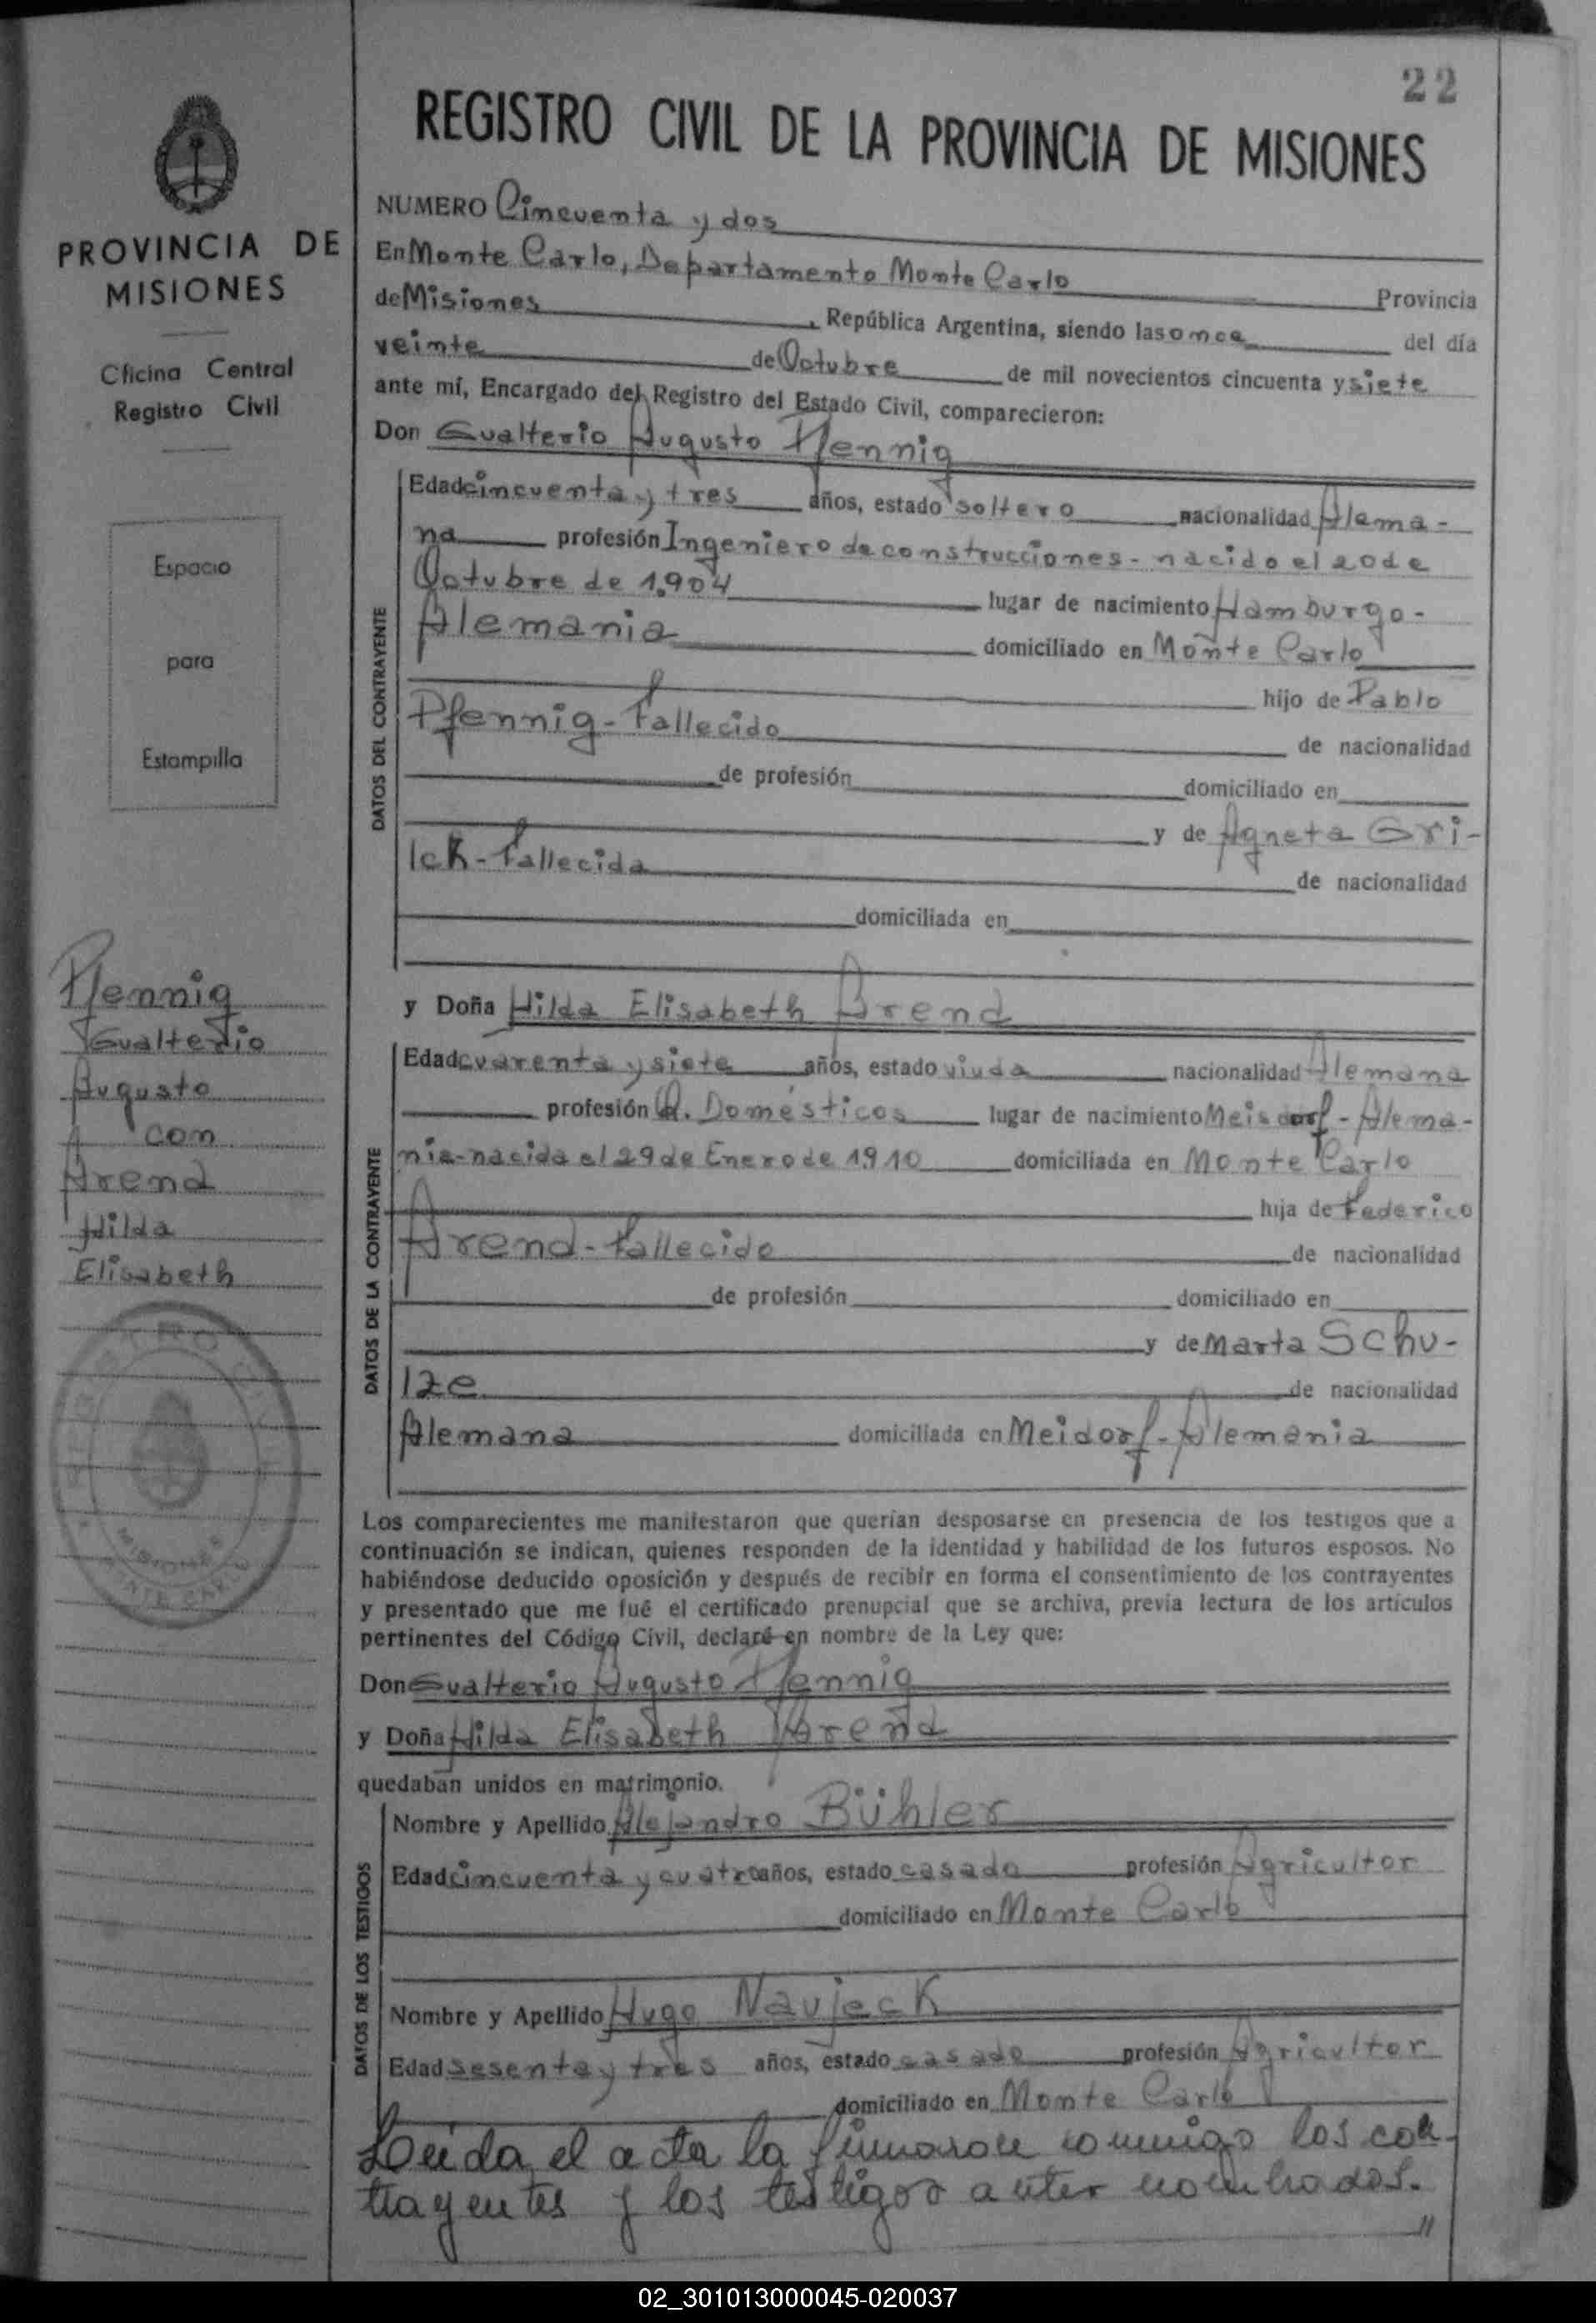 22
PROVINCIA DE
MISIONES
Oficina Central
Registro Civil
Espacio
para
Estampilla
Pfennig
Gualterio
Augusto
con
Arend
Hilda
Elisabeth
MISIONES
REGISTRO CIVIL DE LA PROVINCIA DE MISIONES
NUMERO Cincuenta y dos
En Monte Carlo, Departamento Monte Carlo Provincia
de Misiones, República Argentina, siendo las once del día
veinte de Octubre de mil novecientos cincuenta y siete
ante mí, Encargado del Registro del Estado Civil, comparecieron:
Don Gualterio Augusto Pfennig
DATOS DEL CONTRAYENTE
Edad cincuenta y tres años, estado soltero nacionalidad Alema-
na profesión Ingeniero de construcciones - nacido el 20 de
Octubre de 1.904 lugar de nacimiento Hamburgo-
Alemania domiciliado en Monte Carlo
hijo de Pablo
Pfennig - fallecido de nacionalidad
de profesión domiciliado en
y de Agneta Gri-
lck - fallecida de nacionalidad
domiciliada en
y Doña Hilda Elisabeth Arend
DATOS DE LA CONTRAYENTE
Edad cuarenta y siete años, estado viuda nacionalidad Alemana
profesión Q. Domésticos lugar de nacimiento Meisdorf - Alema-
nia - nacida el 29 de Enero de 1910 domiciliada en Monte Carlo
hija de Federico
Arend - fallecido de nacionalidad
de profesión domiciliado en
y de Marta Schu-
lze de nacionalidad
Alemana domiciliada en Meidorf - Alemania
Los comparecientes me manifestaron que querían desposarse en presencia de los testigos que a
continuación se indican, quienes responden de la identidad y habilidad de los futuros esposos. No
habiéndose deducido oposición y después de recibir en forma el consentimiento de los contrayentes
y presentado que me fué el certificado prenupcial que se archiva, previa lectura de los artículos
pertinentes del Código Civil, declaré en nombre de la Ley que:
Don Gualterio Augusto Pfennig
y Doña Hilda Elisabeth Arend
quedaban unidos en matrimonio.
DATOS DE LOS TESTIGOS
Nombre y Apellido Alejandro Bühler
Edad cincuenta y cuatro años, estado casado profesión Agricultor
domiciliado en Monte Carlo
Nombre y Apellido Hugo Naujeck
Edad sesenta y tres años, estado casado profesión Agricultor
domiciliado en Monte Carlo
Leída el acta la firmaron conmigo los con-
trayentes y los testigos antes nombrados.
"
02_301013000045-020037